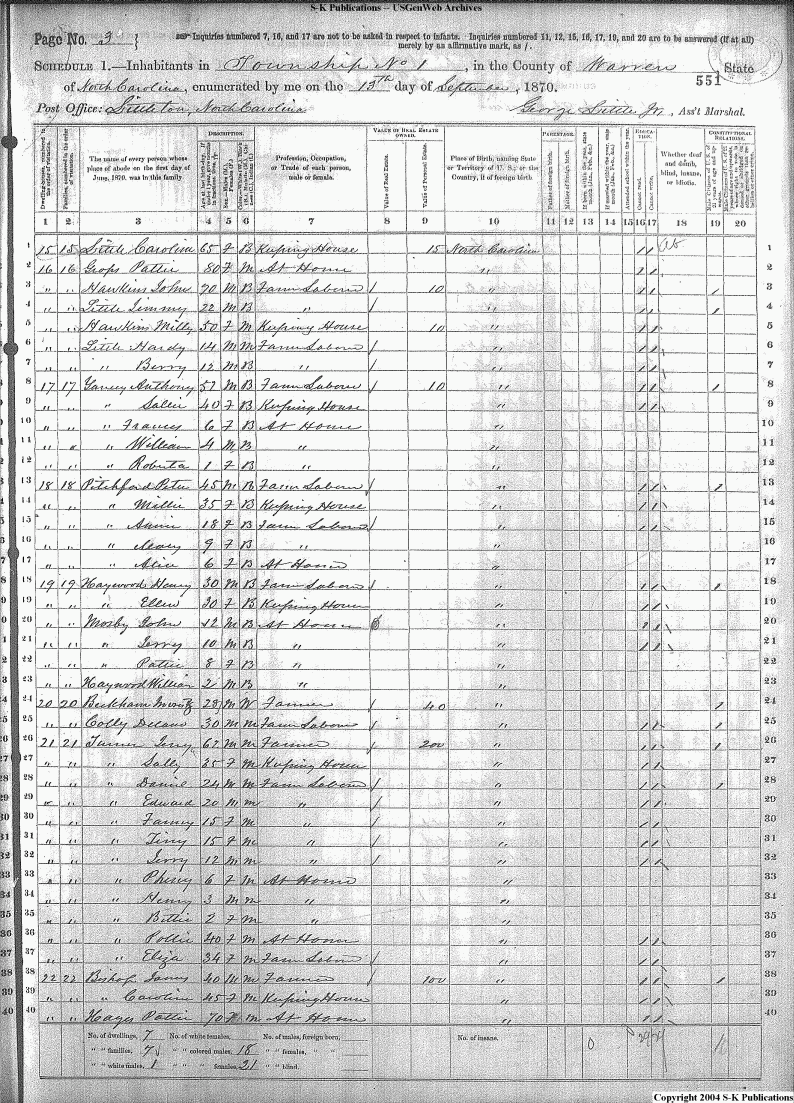 S-K Publications -- USGenWeb Archives
Page No. 3 } Inquiries numbered 7, 16, and 17 are not to be asked in respect to infants. Inquiries numbered 11, 12, 15, 16, 17, 19, and 20 are to be answered (if at all)
merely by an affirmative mark, as /.
SCHEDULE 1.—Inhabitants in Township No 1, in the County of Warren, State
551
of North Carolina, enumerated by me on the 13th day of September, 1870.
Post Office: Littleton, North Carolina George Little Jr, Ass't Marshal.
DESCRIPTION. VALUE OF REAL ESTATE OWNED. PARENTAGE. EDUCATION. CONSTITUTIONAL RELATIONS.
The name of every person whose place of abode on the first day of June, 1870, was in this family
Profession, Occupation, or Trade of each person, male or female.
Value of Real Estate. Value of Personal Estate.
Place of Birth, naming State or Territory of U. S.; or the Country, if of foreign birth
Father of foreign birth. Mother of foreign birth.
Attended school within the year. Cannot read. Cannot write.
Whether deaf and dumb, blind, insane, or idiotic.
1 2 3 4 5 6 7 8 9 10 11 12 13 14 15 16 17 18 19 20
1 15 15 Little Carolina 65 F B Keeping House 15 North Carolina / / 1
2 16 16 Pattie 80 F M At Home " / / 2
3 " " Hawkins John 70 M B Farm Laborer / 10 " / / / 3
4 " " Little Jimmy 22 M B " / " / / / 4
5 " " Hawkins Milly 50 F M Keeping House 10 " / / 5
6 " " Little Hardy 14 M M Farm Laborer / " / / 6
7 " " " Berry 12 M B " / " / / 7
8 17 17 Yancey Anthony 57 M B Farm Laborer / 10 " / / / 8
9 " " " Sallie 40 F B Keeping House " / / 9
10 " " " Frances 6 F B At Home " 10
11 " " " William 4 M B " " 11
12 " " " Roberta 1 F B " " 12
13 18 18 Pitchford Peter 45 M B Farm Laborer / " / / / 13
14 " " " Millie 35 F B Keeping House " / / 14
15 " " " Annie 18 F B Farm Laborer / " / / 15
16 " " " 9 F B " " 16
17 " " " Alice 6 F B At Home " 17
18 19 19 Haywood Henry 30 M B Farm Laborer / " / / / 18
19 " " " Ellen 30 F B Keeping House " / / 19
20 " " Mosby John 12 M B At Home " / / 20
21 " " " Jerry 10 M B " " / / 21
22 " " " Pattie 8 F B " " 22
23 " " Haywood William 2 M B " " 23
24 20 20 Beckham 28 M W Farmer / 40 " / 24
25 " " Colly 30 M M Farm Laborer / " / / / 25
26 21 21 Turner Jerry 67 M M Farmer / 200 " / / / 26
27 " " " Sally 35 F M Keeping House " / / 27
28 " " " Daniel 24 M M Farm Laborer / " / / / 28
29 " " " Edward 20 M M " / " / / 29
30 " " " Fanny 15 F M " / " / / 30
31 " " " Tiny 15 F M " / " / / 31
32 " " " Jerry 12 M M " / " / / 32
33 " " " 6 F M At Home " 33
34 " " " Henry 3 M M " " 34
35 " " " Bettie 2 F M " " 35
36 " " " Pollie 40 F M At Home " / / 36
37 " " " Eliza 34 F M Farm Laborer / " / / 37
38 22 22 Bishop James 40 M M Farmer / 100 " / / / 38
39 " " " Caroline 45 F M Keeping House " / / 39
40 " " Hayes Pattie 70 F M At Home " / / 40
No. of dwellings, 7 No. of white females, No. of males, foreign born, No. of insane. 0
" " families, 7 " " colored males, 18 " " females, " "
" " white males, 1 " " " females, 21 " " blind.
Copyright 2004 S-K Publications